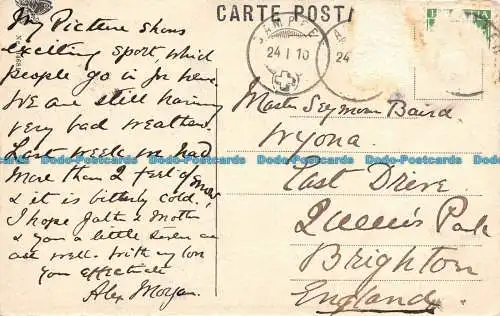 CARTE POSTA
24 I 10
24
My Picture shows
exciting sport, which
people go in for here.
We are still having
very bad weather.
Last week we had
more than 2 feet of snow
& it is bitterly cold.
I hope & Mother
& you a little are
all well. With my love
Your affectionate
Alex Morgan.
Master Seymour Baird.
Wyona.
East Drive
Queen's Park
Brighton
England.
Dodo-Postcards Dodo-Postcards Dodo-Postcards Dodo-Postcards